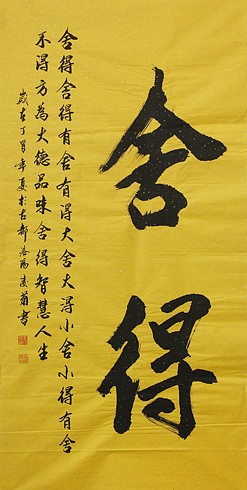 舍得
舍得舍得有舍有得大舍大得小舍小得有舍
不得方為大德品味舍得智慧人生
歲在丁酉年夏於古都洛陽書